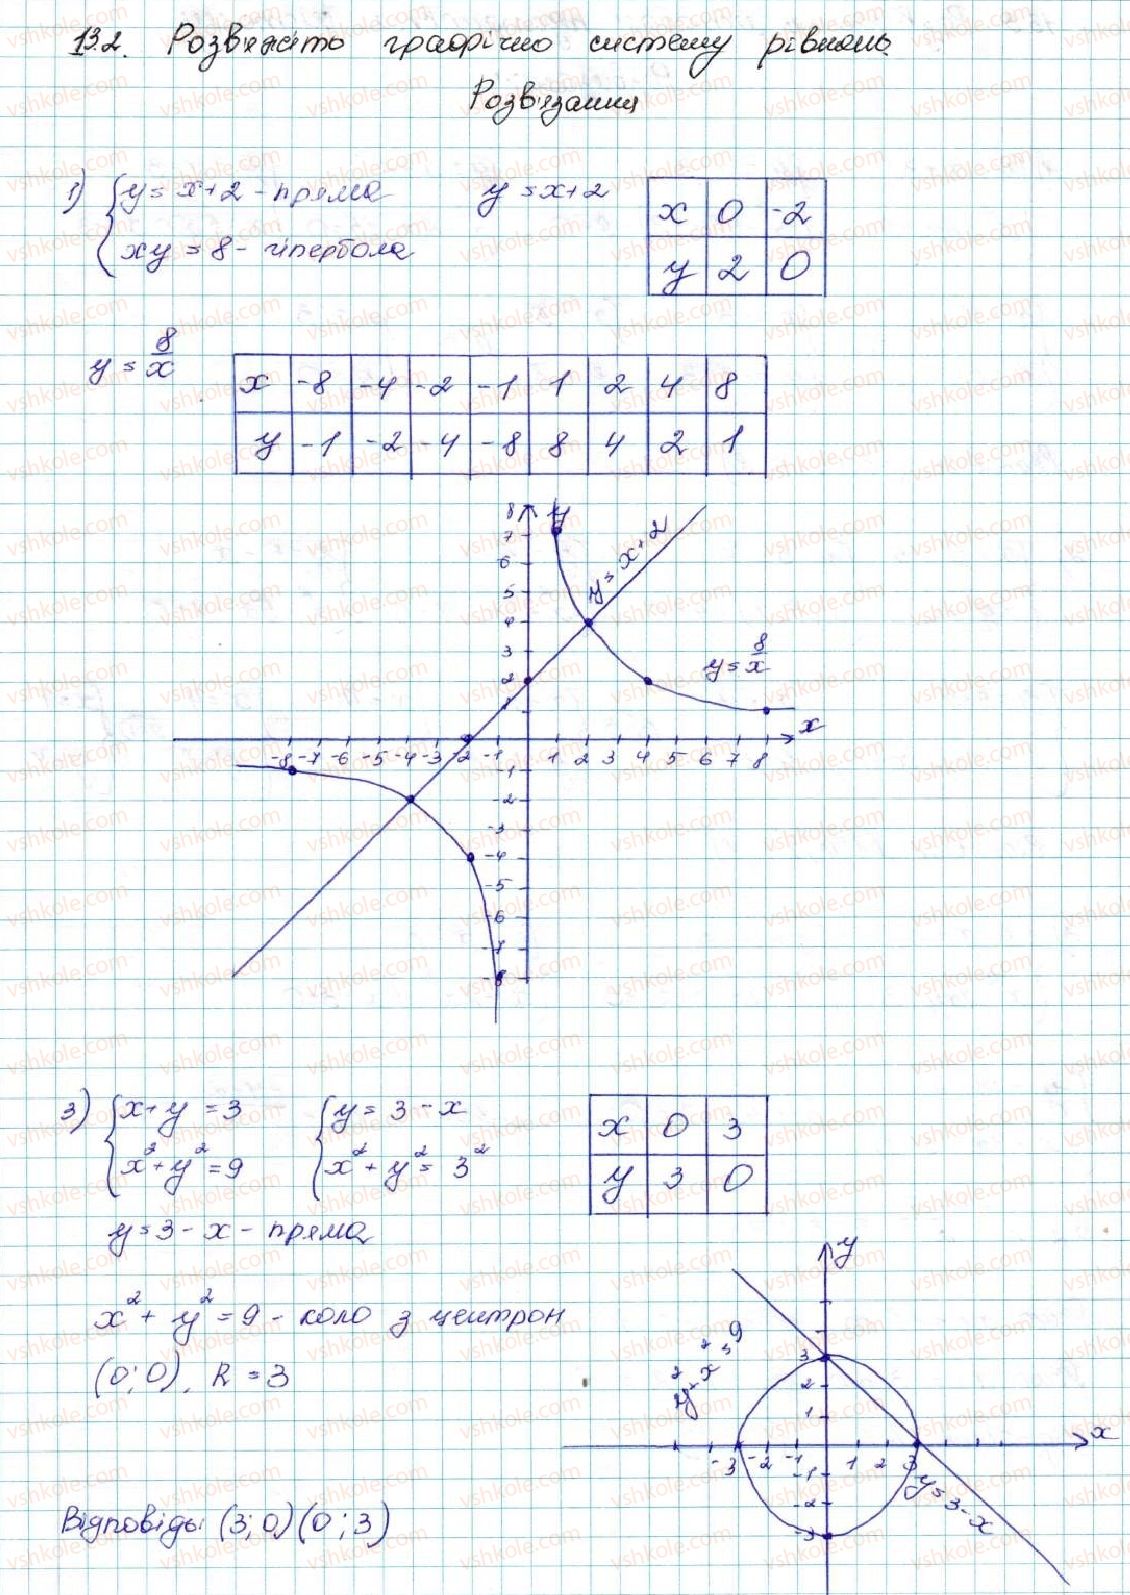 13.2. Розв'яжіть графічно систему рівнянь.
Розв'язання
1) { y = x + 2 - пряма
xy = 8 - гіпербола
y = x + 2
x 0 -2
y 2 0
y = 8/x
x -8 -4 -2 -1 1 2 4 8
y -1 -2 -4 -8 8 4 2 1
y
8
7
6
5
4
3
2
1
y = x + 2
y = 8/x
x
-8 -7 -6 -5 -4 -3 -2 -1 1 2 3 4 5 6 7 8
-1
-2
-3
-4
-5
-6
-7
-8
3) { x + y = 3
x² + y² = 9
{ y = 3 - x
x² + y² = 3²
x 0 3
y 3 0
y = 3 - x - пряма
x² + y² = 9 - коло з центром
(0; 0), R = 3
y
y² + x² = 9
3
2
1
x
-3 -2 -1 1 2 3
-1
-2
-3
y = 3 - x
Відповідь: (3; 0) (0; 3)